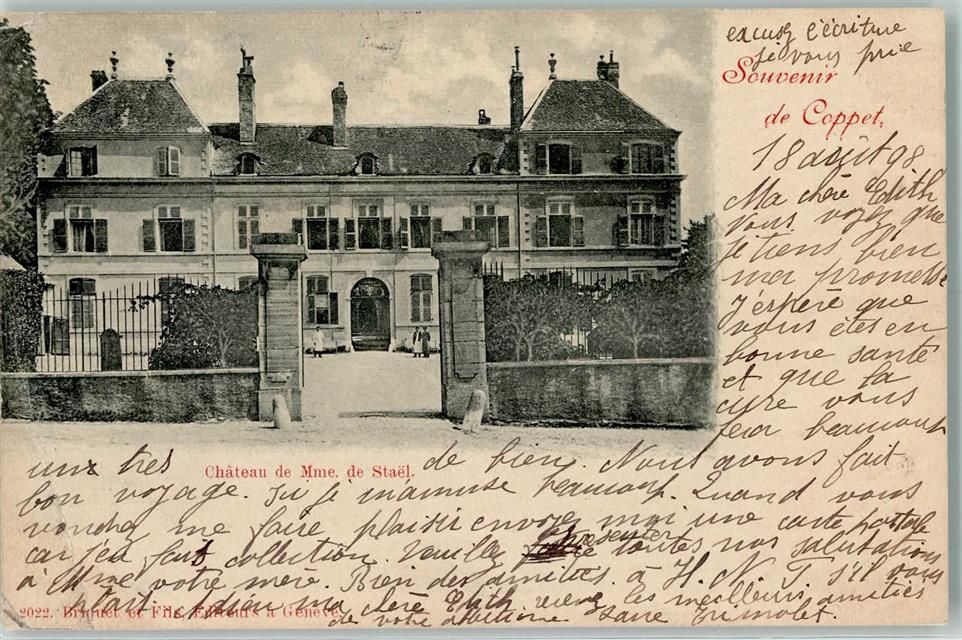 excusez l'écriture
je vous prie
Souvenir
de Coppet.
18 août 98
Ma chère Edith
Vous voyez que
je tiens bien
ma promesse
J'espère que
vous êtes en
bonne santé
et que la
cure vous
fera beaucoup
de bien. Nous avons fait
un très
bon voyage. Ici je m'amuse beaucoup. Quand vous
voudrez me faire plaisir envoyez moi une carte postale
car j'en fais collection. Veuillez présenter toutes nos salutations
à Mme votre mère. Bien des amitiés à H. N. T. s'il vous
plait. Adieu ma chère Edith, recevez les meilleures amitiés
de votre
Château de Mme. de Staël.
2022. Briquet et Fils, Editeurs à Genève.